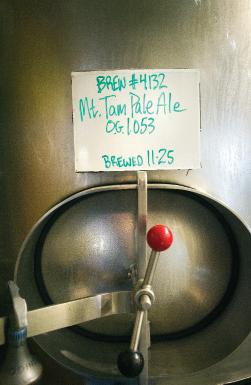 BREW #4132
Mt. Tam Pale Ale
O.G. 1.053
BREWED 11-25